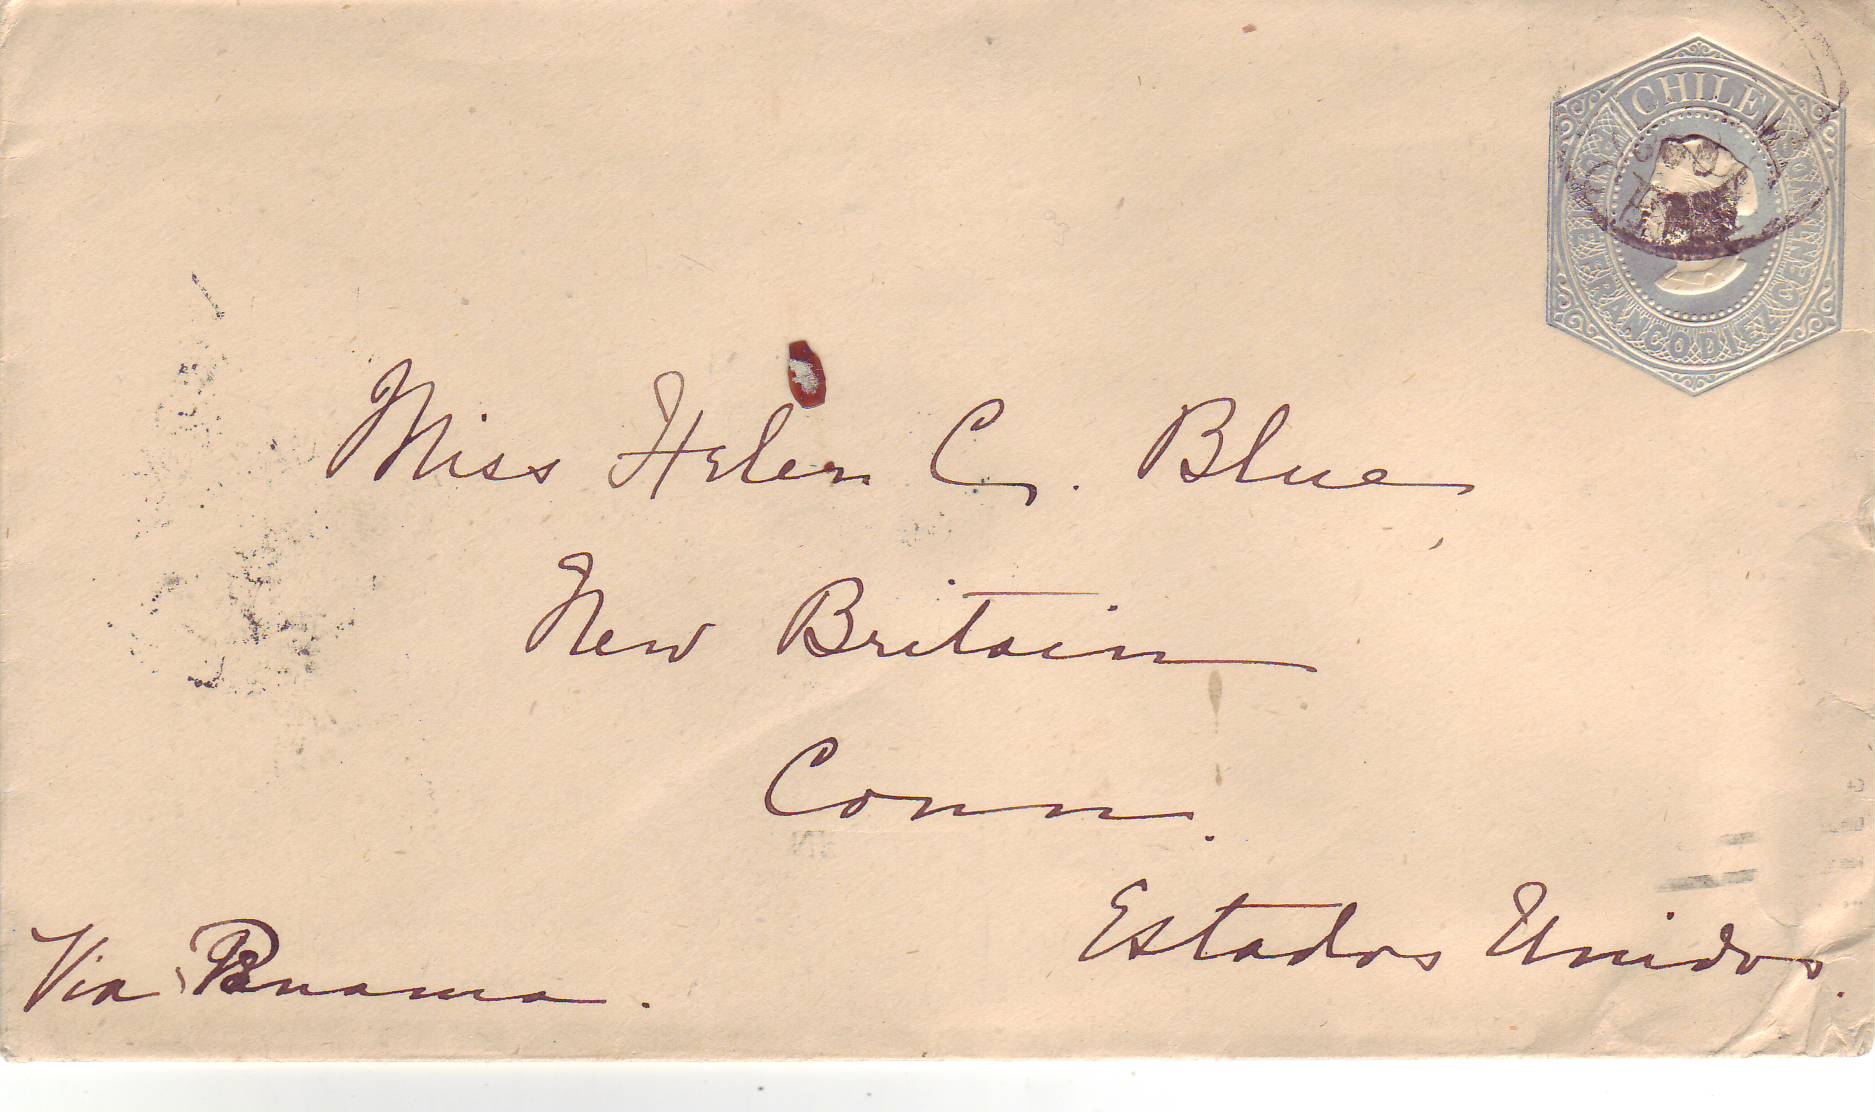 CHILE
PRIMER FRANCO DIEZ CENTAVOS
Miss Helen C. Blue,
New Britain
Conn.
Estados Unidos.
Via Panama.